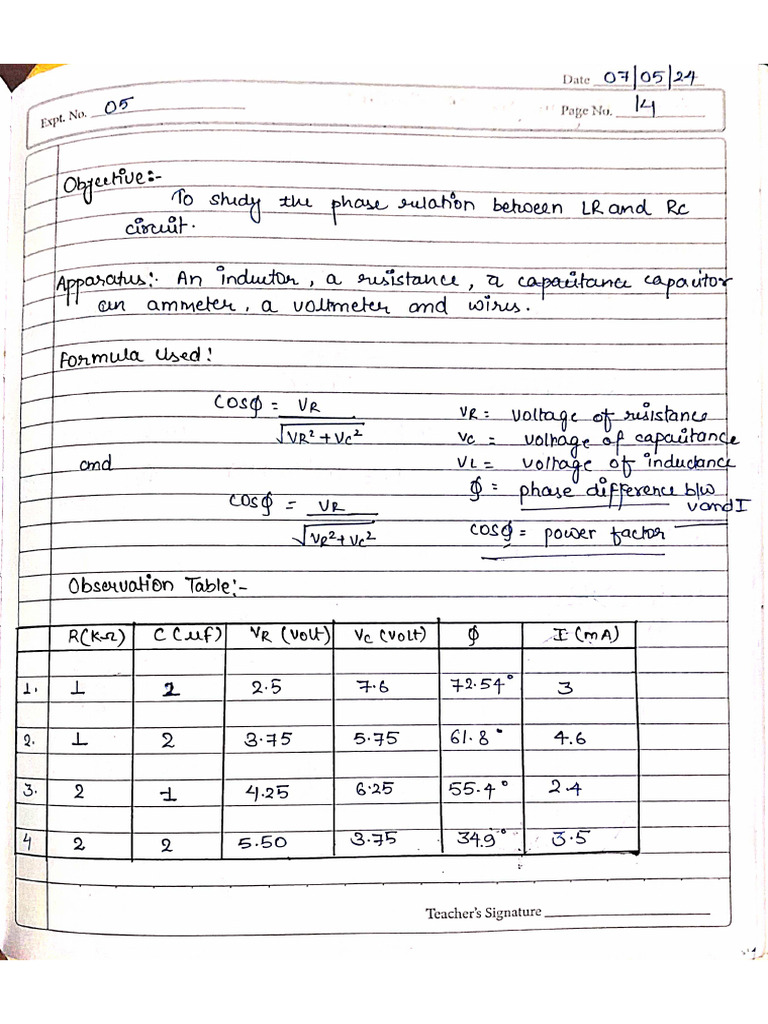 Date 07/05/24
Expt. No. 05
Page No. 14
Objective:-
To study the phase relation between LR and RC
circuit.
Apparatus:- An inductor, a resistance, a capacitance capacitor
an ammeter, a voltmeter and wires.
Formula Used:
COSϕ = VR / √VR²+VC²
VR = voltage of resistance
VC = voltage of capacitance
and
VL = voltage of inductance
ϕ = phase difference b/w
V and I
COSϕ = VR / √VR²+VC²
COSϕ = power factor
Observation Table:-
R(KΩ) C(μf) VR (Volt) VC (Volt) ϕ I (mA)
1. 1 2 2.5 7.6 72.54° 3
2. 1 2 3.75 5.75 61.8° 4.6
3. 2 1 4.25 6.25 55.4° 2.4
4 2 2 5.50 3.75 34.9° 3.5
Teacher's Signature